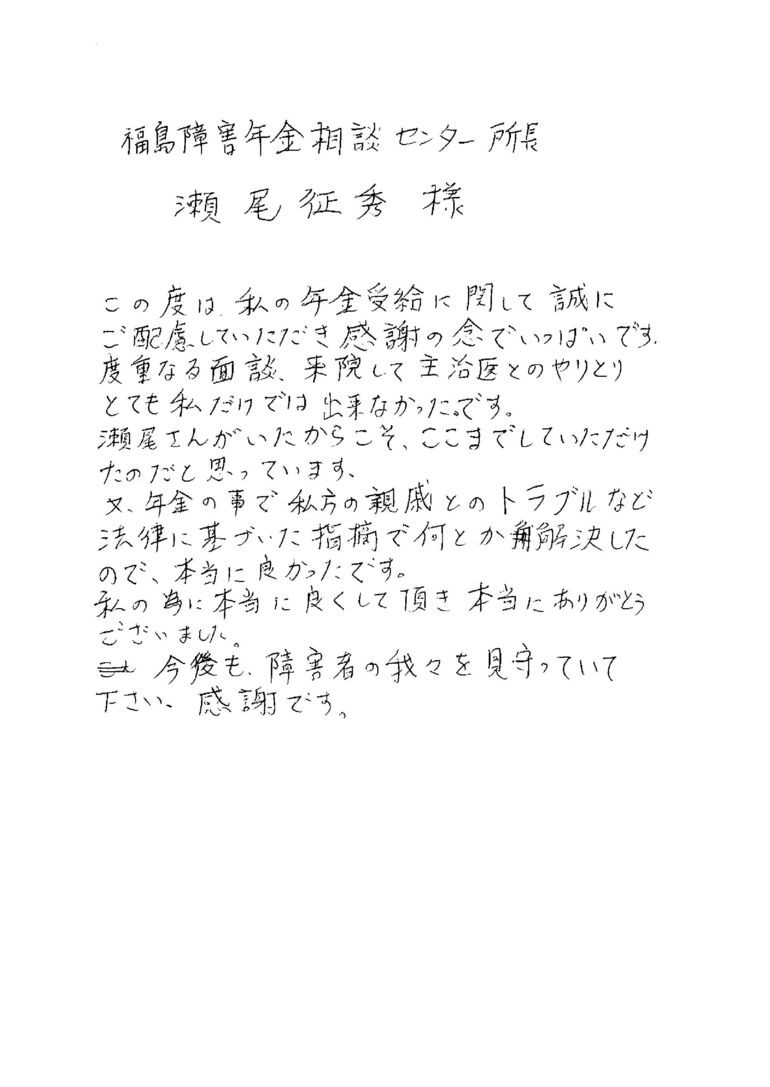 福島障害年金相談センター所長
瀬尾征秀様
この度は、私の年金受給に関して誠に
ご配慮していただき感謝の念でいっぱいです.
度重なる面談、来院して主治医とのやりとり
とても私だけでは出来なかったです。
瀬尾さんがいたからこそ、ここまでしていただけ
たのだと思っています、
又、年金の事で私方の親戚とのトラブルなど
法律に基づいた指摘で何とか解決した
ので、本当に良かったです。
私の為に本当に良くして頂き本当にありがとう
ございました。
今後も、障害者の我々を見守っていて
下さい。感謝です。